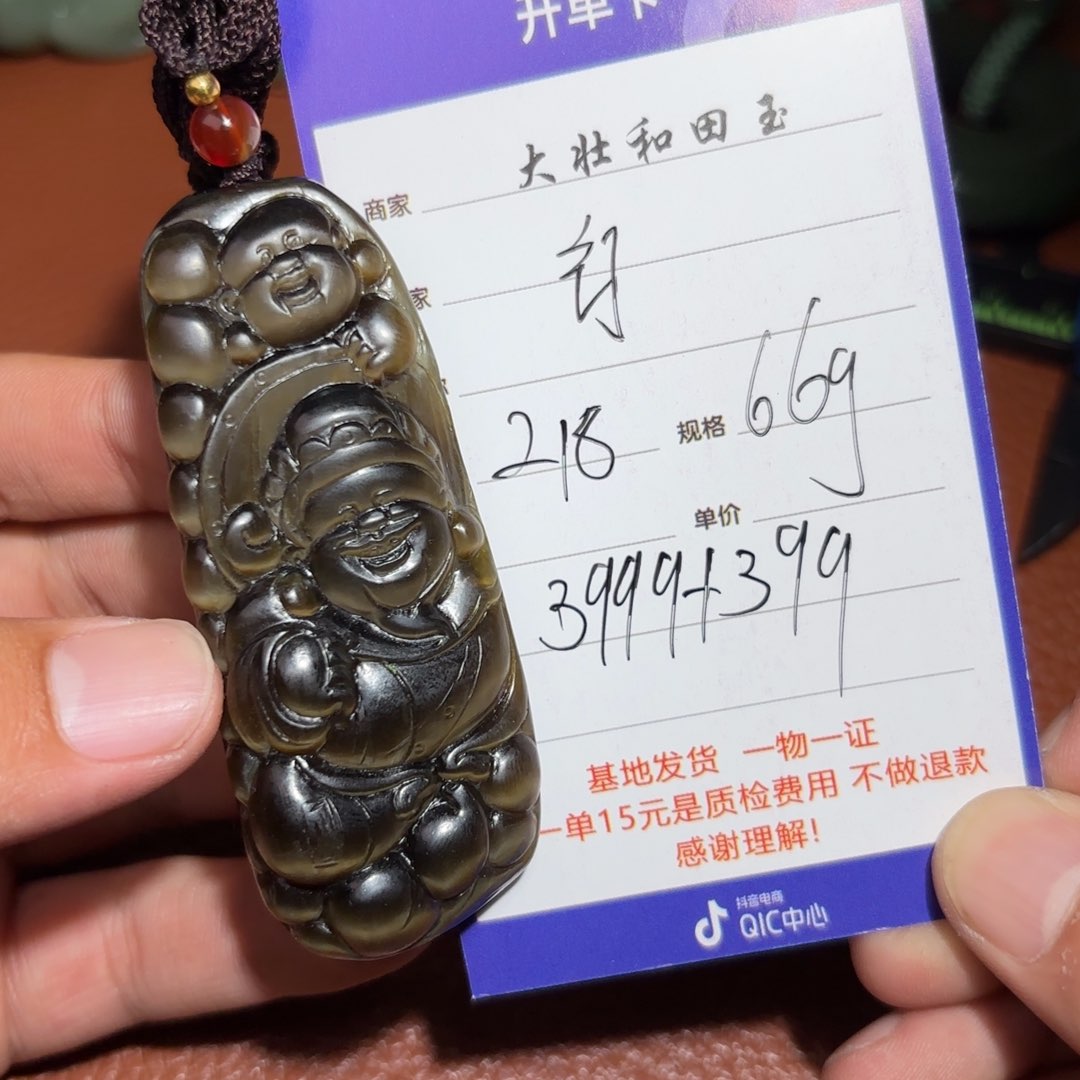 开单卡
商家 大壮和田玉
家
218 规格 66g
单价
3999+399
基地发货 一物一证
一单15元是质检费用 不做退款
感谢理解！
抖音电商
QIC中心